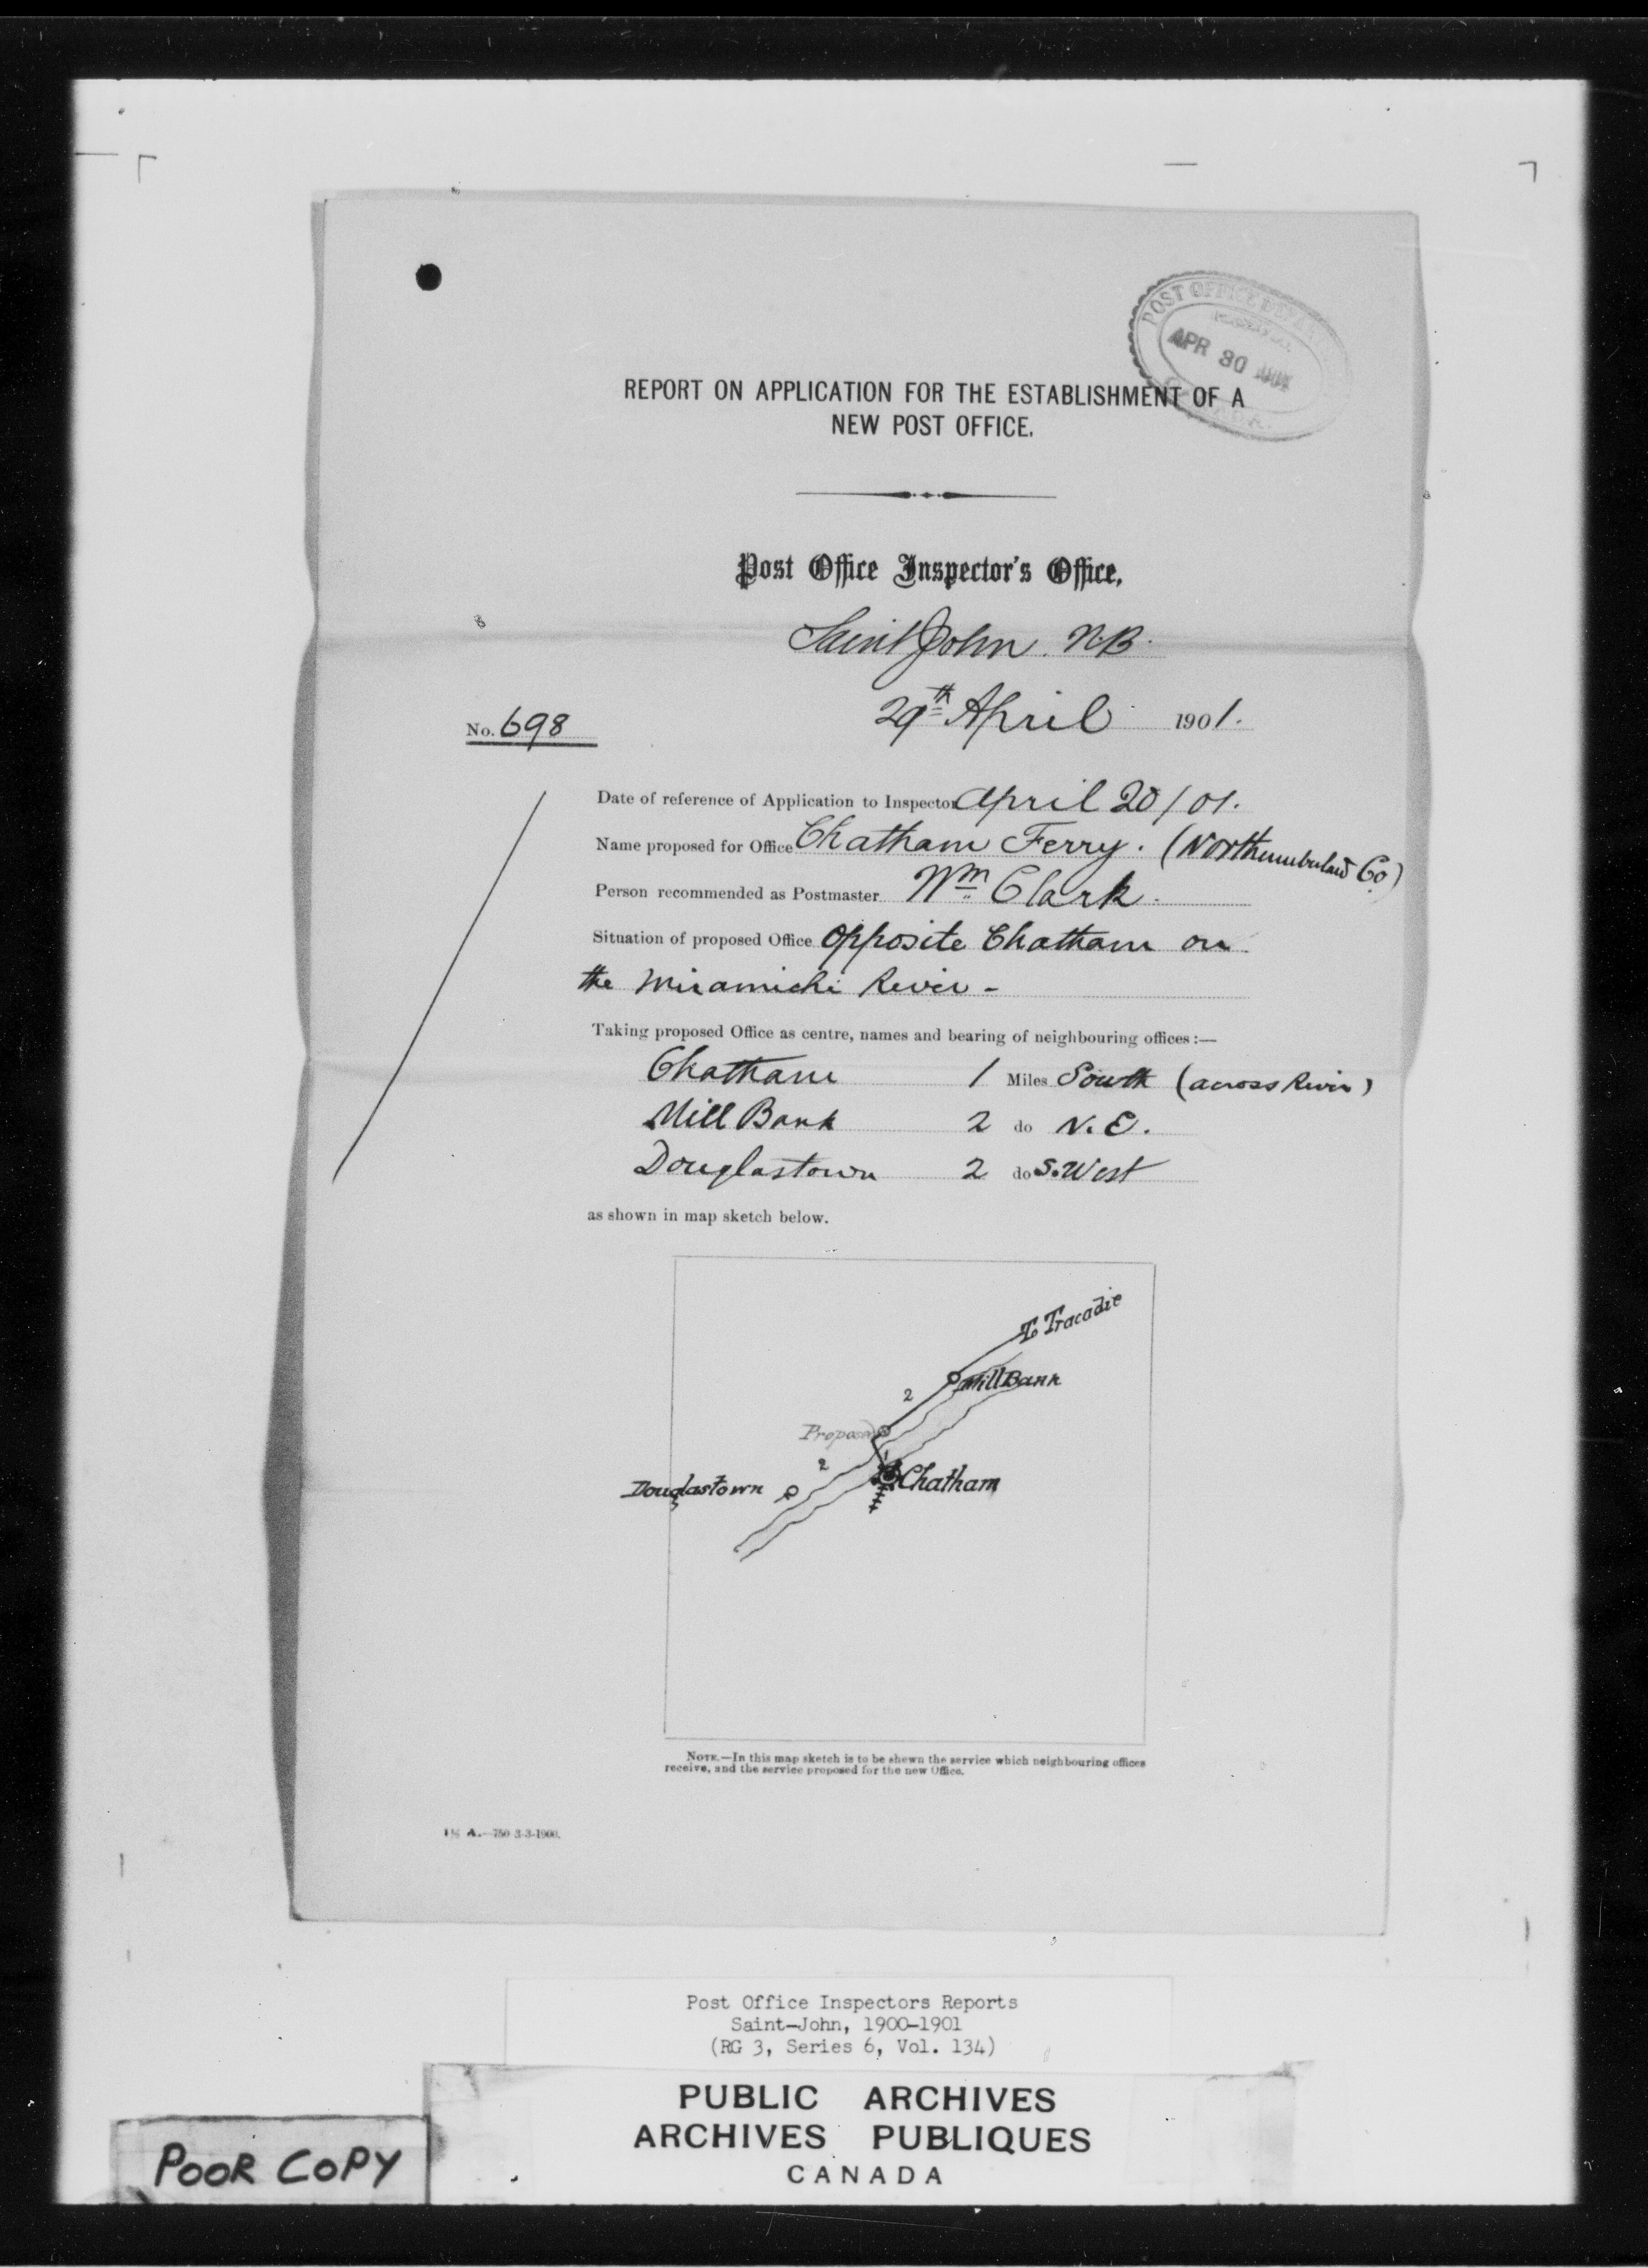 POST OFFICE
APR 30
REPORT ON APPLICATION FOR THE ESTABLISHMENT OF A
NEW POST OFFICE.
Post Office Inspector's Office,
Saint John. N.B.
29th April 1901.
No. 698
Date of reference of Application to Inspector April 20/01.
Name proposed for Office Chatham Ferry. (Northumberland Co)
Person recommended as Postmaster Wm Clark.
Situation of proposed Office Opposite Chatham on
the Miramichi River -
Taking proposed Office as centre, names and bearing of neighbouring offices :—
Chatham 1 Miles South (across River)
Mill Bank 2 do N.E.
Douglastown 2 do S. West
as shown in map sketch below.
To Tracadie
Mill Bank
2
Proposed
2
Chatham
Douglastown
NOTE.—In this map sketch is to be shewn the service which neighbouring offices
receive, and the service proposed for the new Office.
A.—750 3-3-1900.
Post Office Inspectors Reports
Saint-John, 1900-1901
(RG 3, Series 6, Vol. 134)
PUBLIC ARCHIVES
ARCHIVES PUBLIQUES
CANADA
POOR COPY